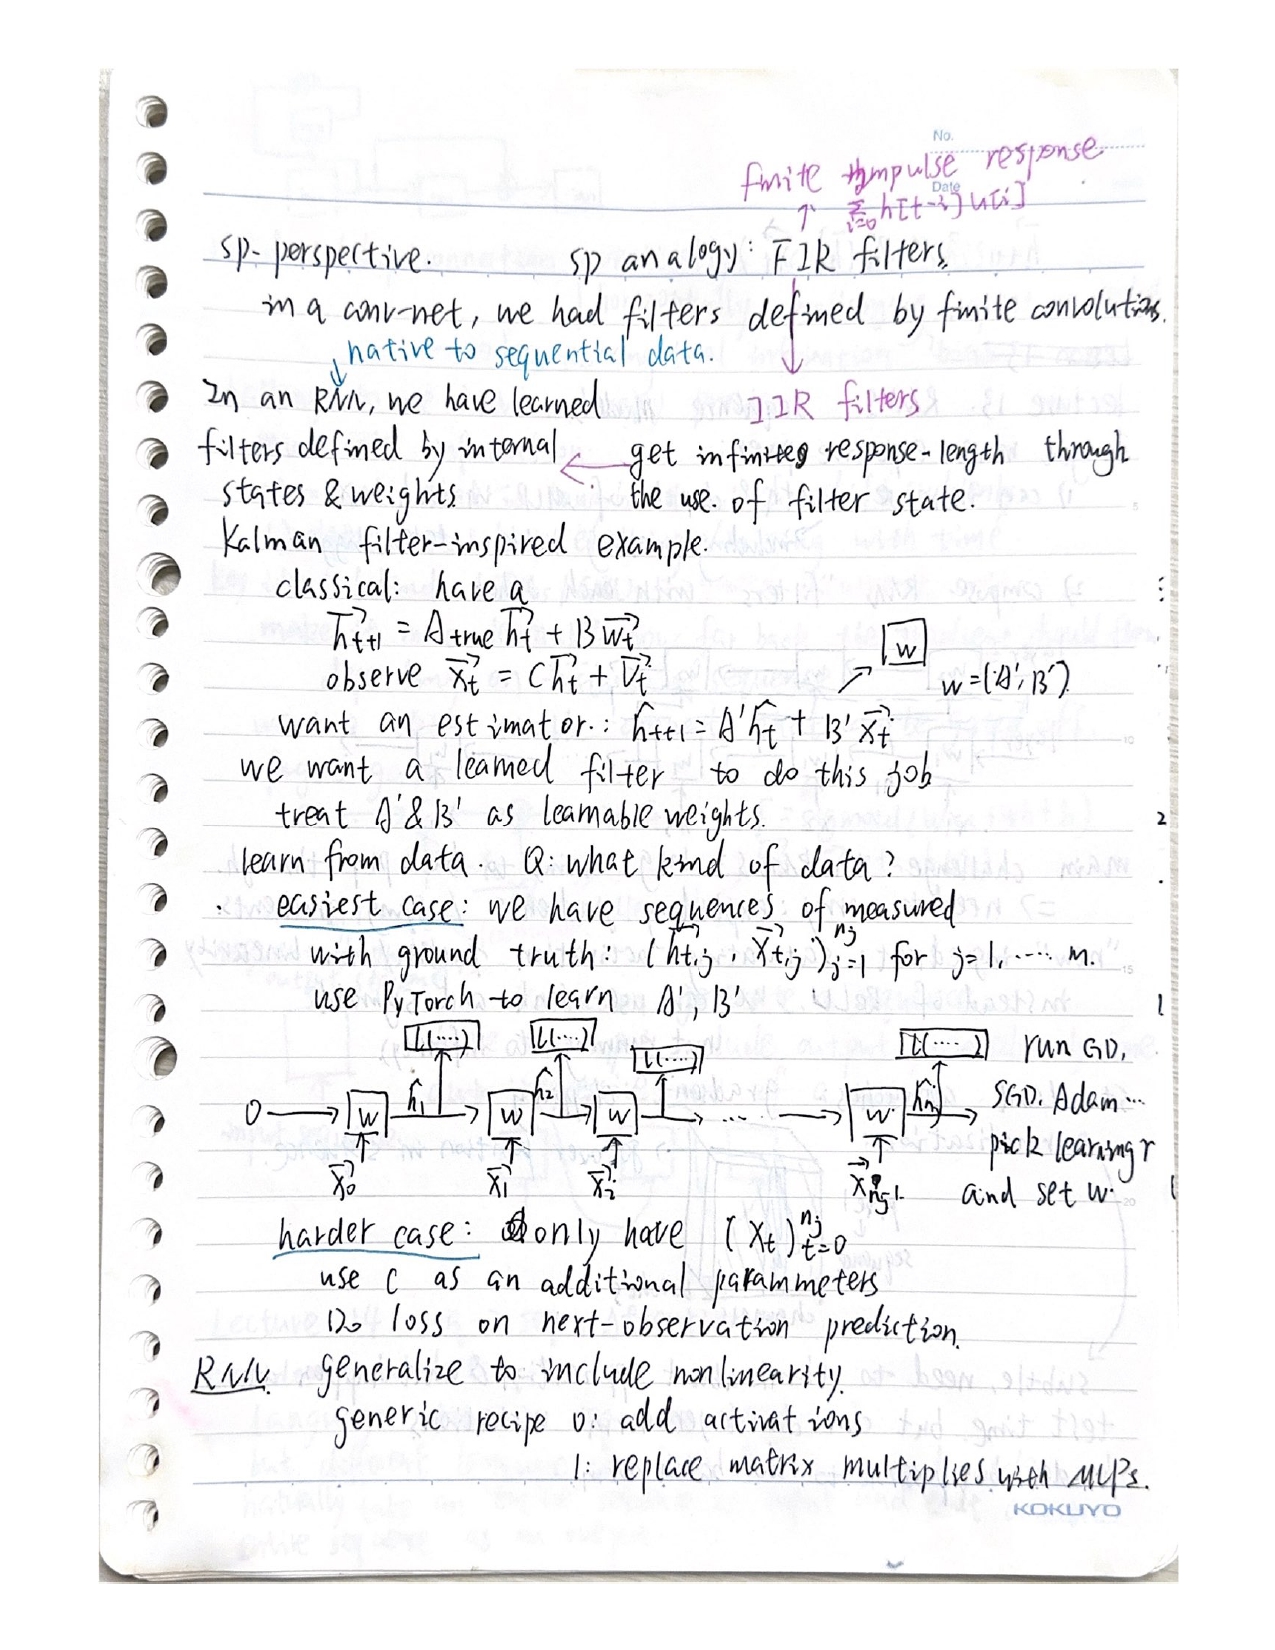 No.
finite impulse response
Date
Σ i=0 h[t-i]u[i]
sp-perspective. sp analogy: FIR filters
in a conv-net, we had filters defined by finite convolutions.
native to sequential data.
In an RNN, we have learned IIR filters
filters defined by internal get infinite response-length through
states & weights. the use. of filter state.
Kalman filter-inspired example.
classical: have a
h⃗t+1 = A true h⃗t + B w⃗t
observe x⃗t = C h⃗t + v⃗t
W
W=(A', B')
want an estimator.: ĥt+1 = A' ĥt + B' x⃗t
we want a learned filter to do this job
treat A' & B' as learnable weights.
learn from data. Q: what kind of data?
easiest case: we have sequences of measured
with ground truth: (h⃗t,j, x⃗t,j)^nj j=1 for j=1, ..... m.
use PyTorch to learn A', B'
L(....) L(....) L(....) L(....) run GD,
0 W ĥ1 W ĥ2 W ... W ĥnj SGD. Adam...
pick learning r
x⃗0 x⃗1 x⃗2 x⃗nj-1. and set w.
harder case: only have (xt)^nj t=0
use C as an additional parammeters
Do loss on next-observation prediction.
RNN. generalize to include nonlinearity.
generic recipe 0: add activations
1: replace matrix multiplies with MLPs.
KOKUYO